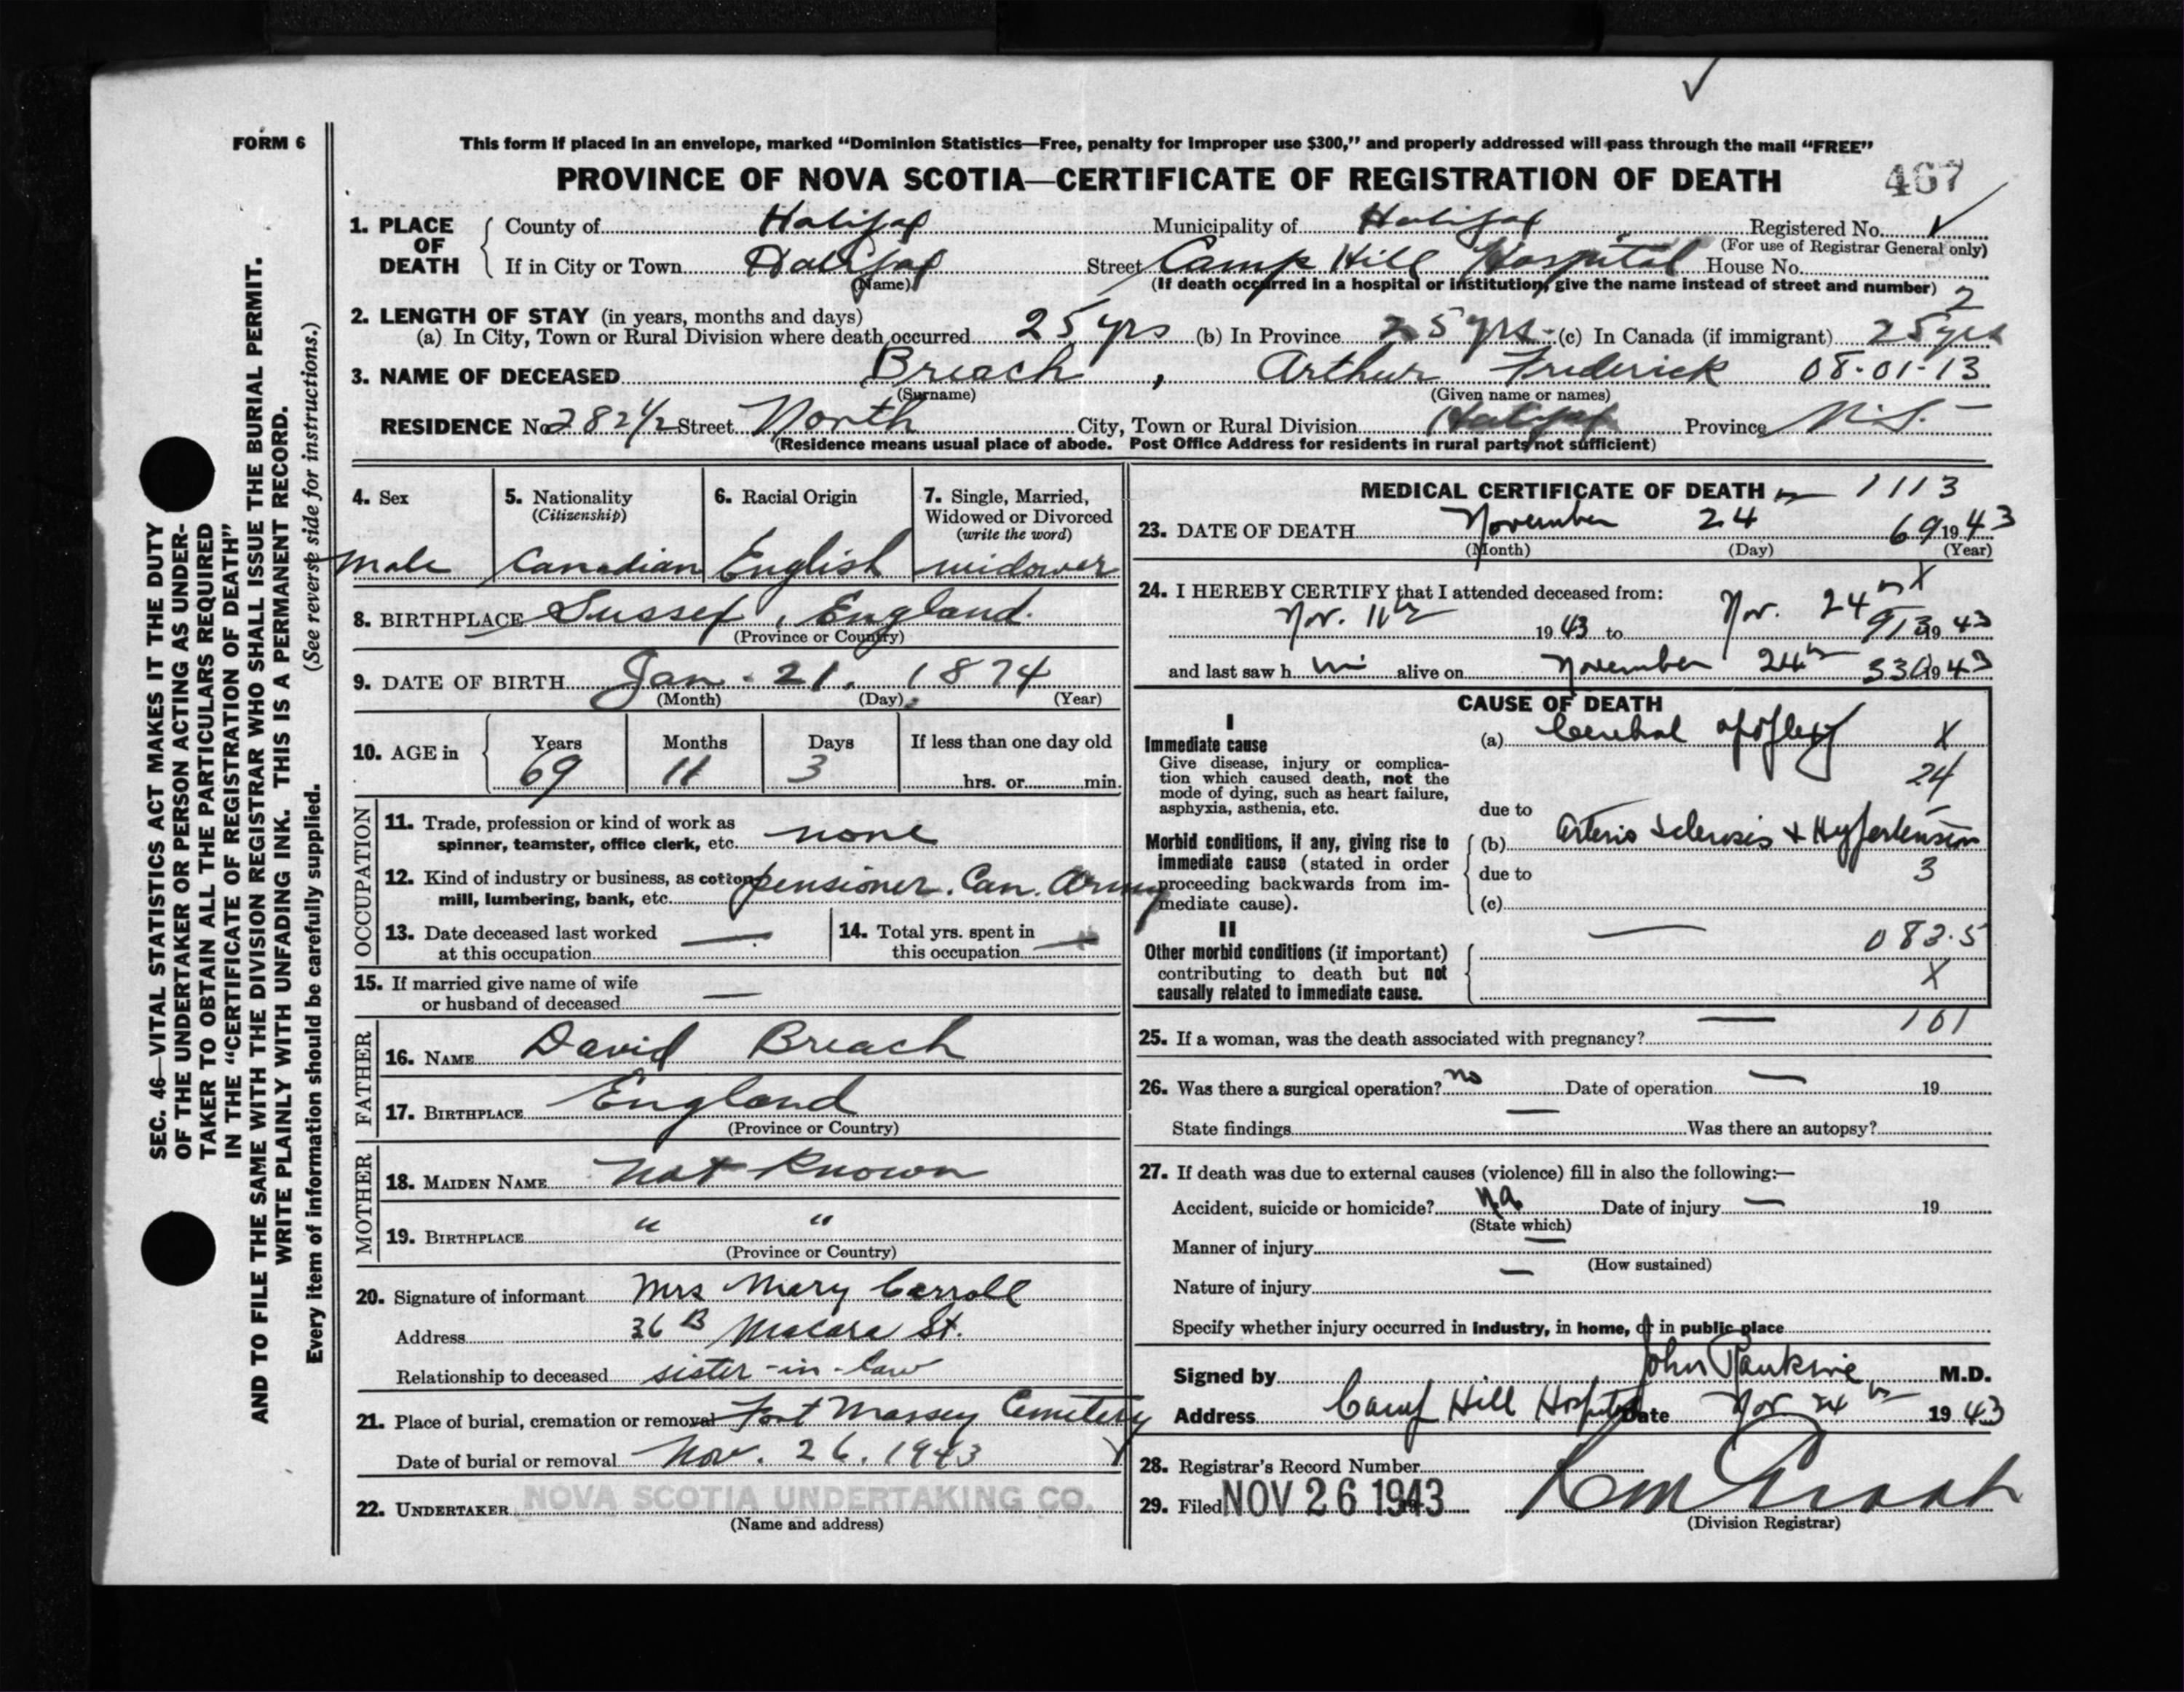 FORM 6
This form if placed in an envelope, marked "Dominion Statistics—Free, penalty for improper use $300," and properly addressed will pass through the mail "FREE"
PROVINCE OF NOVA SCOTIA—CERTIFICATE OF REGISTRATION OF DEATH 467
1. PLACE OF DEATH County of Halifax Municipality of Halifax Registered No.
(For use of Registrar General only)
If in City or Town Halifax Street Camp Hill Hospital House No.
(Name) (If death occurred in a hospital or institution, give the name instead of street and number) 2
2. LENGTH OF STAY (in years, months and days)
(a) In City, Town or Rural Division where death occurred 25 yrs (b) In Province 25 yrs. (c) In Canada (if immigrant) 25 yrs
3. NAME OF DECEASED Breach, Arthur Frederick 08-01-13
(Surname) (Given name or names)
RESIDENCE No. 282 1/2 Street North City, Town or Rural Division Halifax Province N.S.
(Residence means usual place of abode. Post Office Address for residents in rural parts not sufficient)
4. Sex 5. Nationality 6. Racial Origin 7. Single, Married,
(Citizenship) Widowed or Divorced
(write the word)
male Canadian English widower
8. BIRTHPLACE Sussex, England.
(Province or Country)
9. DATE OF BIRTH Jan. 21. 1874
(Month) (Day) (Year)
10. AGE in Years Months Days If less than one day old
69 11 3 hrs. or min.
OCCUPATION
11. Trade, profession or kind of work as
spinner, teamster, office clerk, etc. none
12. Kind of industry or business, as cotton
mill, lumbering, bank, etc. pensioner. Can. Army
13. Date deceased last worked
at this occupation —
14. Total yrs. spent in
this occupation —
15. If married give name of wife
or husband of deceased —
FATHER
16. NAME David Breach
17. BIRTHPLACE England
(Province or Country)
MOTHER
18. MAIDEN NAME not known
19. BIRTHPLACE " "
(Province or Country)
20. Signature of informant Mrs Mary Carroll
Address 36 B Macara St.
Relationship to deceased sister-in-law
21. Place of burial, cremation or removal Fort Massey Cemetery
Date of burial or removal Nov. 26. 1943
22. UNDERTAKER NOVA SCOTIA UNDERTAKING CO.
(Name and address)
MEDICAL CERTIFICATE OF DEATH 1113
23. DATE OF DEATH November 24 69 1943
(Month) (Day) (Year)
24. I HEREBY CERTIFY that I attended deceased from: X
Nov. 11th 1943 to Nov. 24th 913 1943
and last saw him alive on November 24th 330 1943
CAUSE OF DEATH
I
Immediate cause (a) Cerebral apoplexy X
Give disease, injury or complica-
tion which caused death, not the
mode of dying, such as heart failure,
asphyxia, asthenia, etc. 24
due to
Morbid conditions, if any, giving rise to
immediate cause (stated in order
proceeding backwards from im-
mediate cause).
(b) arterio sclerosis & Hypertension
due to 3
(c)
II
Other morbid conditions (if important)
contributing to death but not
causally related to immediate cause. — 083.5
X
25. If a woman, was the death associated with pregnancy? — 101
26. Was there a surgical operation? no Date of operation — 19
State findings — Was there an autopsy?
27. If death was due to external causes (violence) fill in also the following:—
Accident, suicide or homicide? na Date of injury — 19
(State which)
Manner of injury —
(How sustained)
Nature of injury —
Specify whether injury occurred in industry, in home, or in public place
Signed by John Rankine M.D.
Address Camp Hill Hospital Date Nov 24th 1943
28. Registrar's Record Number
29. Filed NOV 26 1943
(Division Registrar)
SEC. 46—VITAL STATISTICS ACT MAKES IT THE DUTY
OF THE UNDERTAKER OR PERSON ACTING AS UNDER-
TAKER TO OBTAIN ALL THE PARTICULARS REQUIRED
IN THE "CERTIFICATE OF REGISTRATION OF DEATH"
AND TO FILE THE SAME WITH THE DIVISION REGISTRAR WHO SHALL ISSUE THE BURIAL PERMIT.
WRITE PLAINLY WITH UNFADING INK. THIS IS A PERMANENT RECORD.
Every item of information should be carefully supplied. (See reverse side for instructions.)